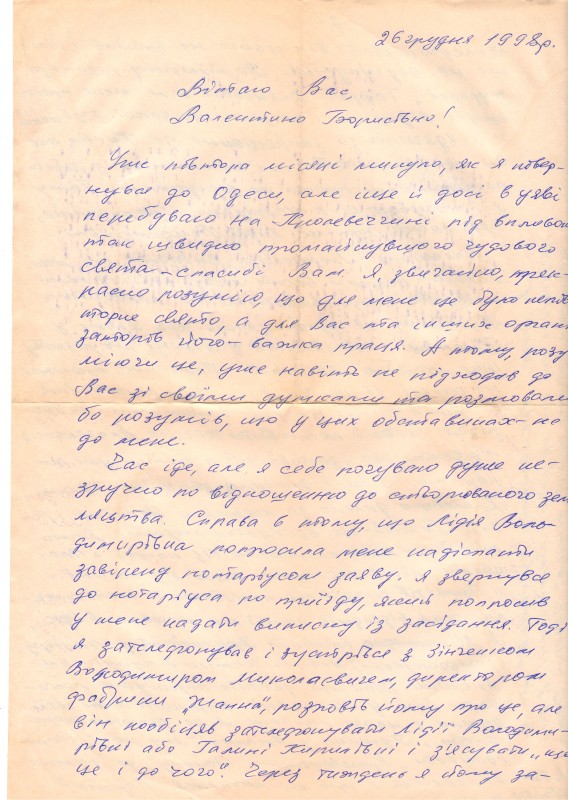 26 грудня 1998р.
Вітаю Вас,
Валентино Борисівно!
Уже півтора місяці минуло, як я повер-
нувся до Одеси, але іще й досі в уяві
перебуваю на Кролевеччині під впливом
так швидко промайнувшого чудового
свята – спасибі Вам. Я звичайно, прек-
расно розумію, що для мене це було непов
торне свято, а для Вас та інших органі
заторів його – важка праця. А тому, розу
міючи це, уже навіть не підходив до
Вас зі своїми думками та розмовами
бо розумів, що у цих обставинах – не
до мене.
Час іде, але я себе почуваю дуже не-
зручно по відношенню до створюваного зем
ляцтва. Справа в тому, що Лідія Воло-
димирівна попросила мене надіслати
завірену нотаріусом заяву. Я звернувся
до нотаріуса по приїзду, який попросив
у мене надати виписку із засідання. Тоді
я зателефонував і зустрівся з
Володимиром Миколаєвичем, директором
фабрики розповів йому про це, але
він пообіцяв зателефонувати Лідії Володими-
рівні або Галині Кирилівні і з'ясувати „що
це і до чого". Через тиждень я йому за-